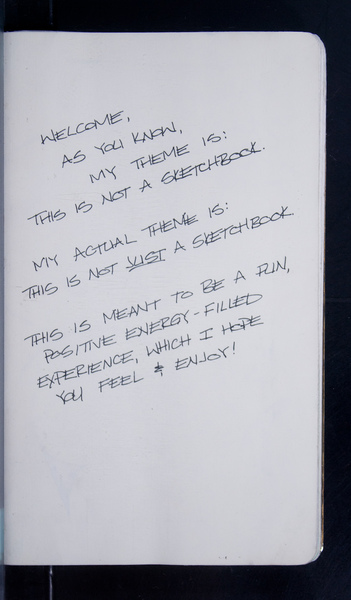 WELCOME,
AS YOU KNOW,
MY THEME IS:
THIS IS NOT A SKETCHBOOK.
MY ACTUAL THEME IS:
THIS IS NOT JUST A SKETCHBOOK
THIS IS MEANT TO BE A FUN,
POSITIVE ENERGY-FILLED
EXPERIENCE, WHICH I HOPE
YOU FEEL & ENJOY!